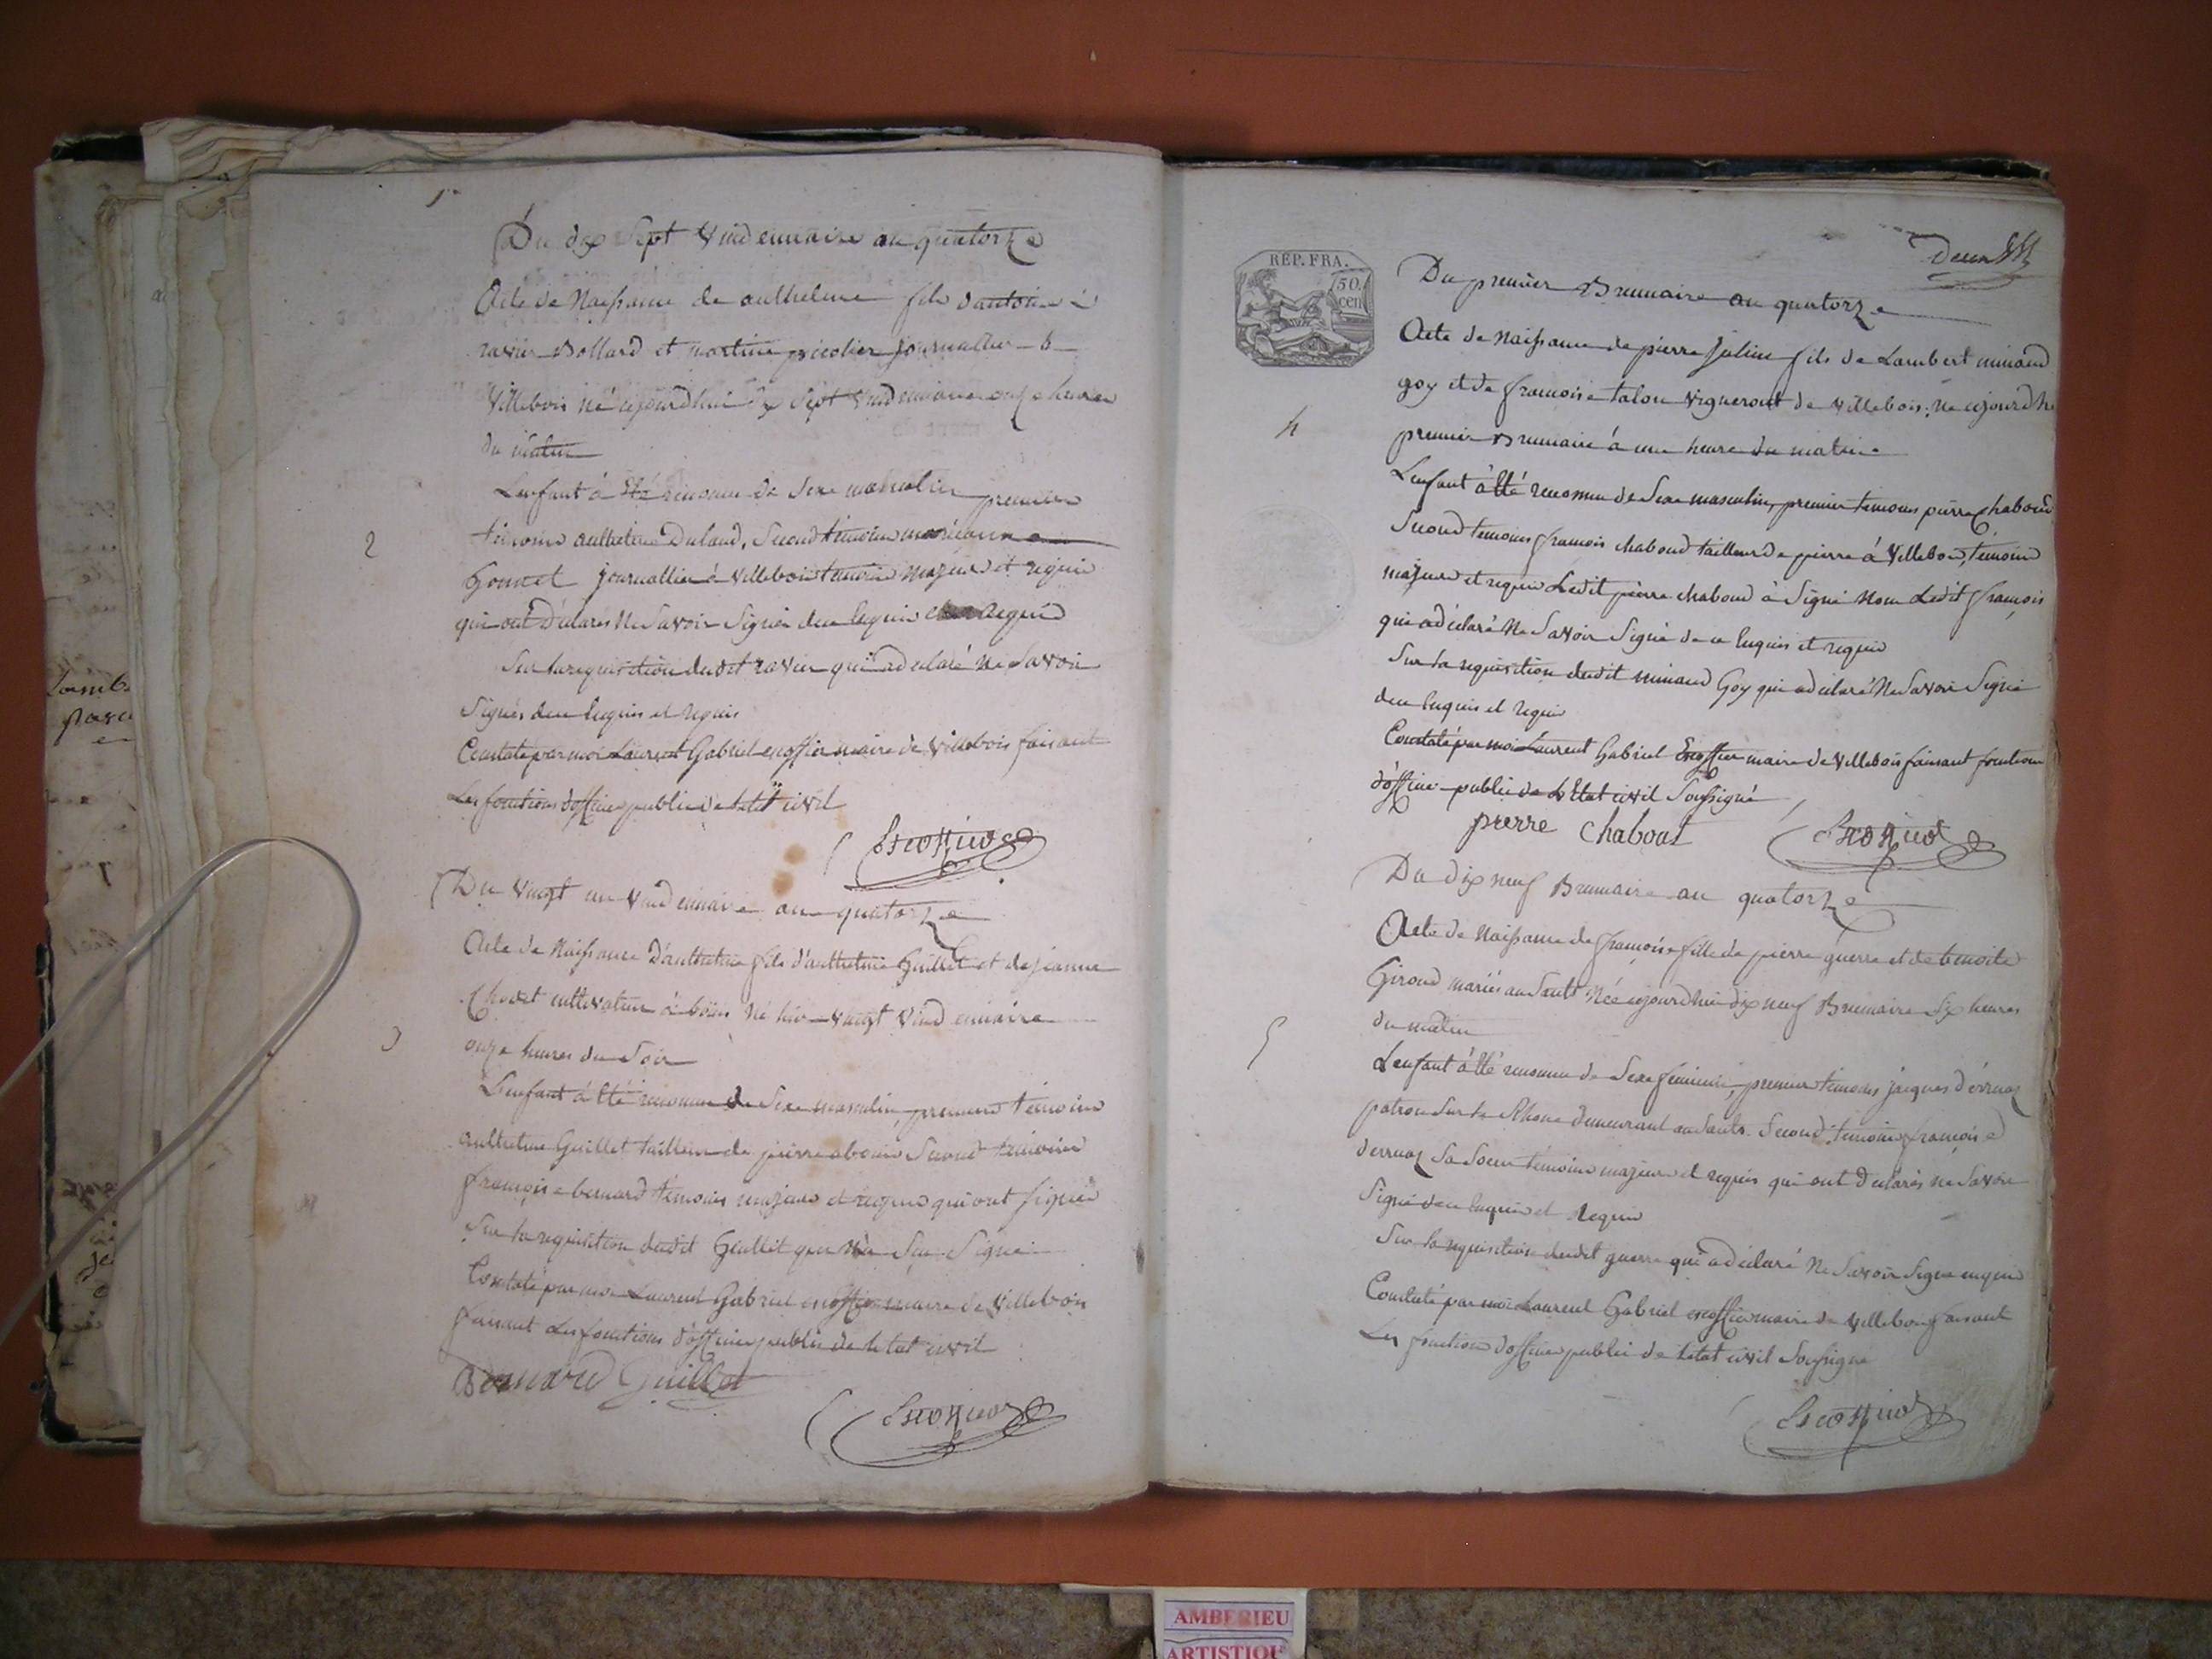 1
Du dix Sept Vindemiaire an quatorze
Acte de Naissance de anthelme fils dantoine
ravier Bollard et journallier
Villebois né aujourdhui dix Sept Vindemiaire onze heures
du matin
Lenfant à été reconnu de Sexe masculin premier
2
témoin anthelme Dulaud, Second témoin
Gonnet journallier à Villebois témoins majeurs et requis
qui ont Déclarés Ne Savoir Signer de ce Enquis et Requis
Sur la requisition dudit ravier qui a déclaré Ne Savoir
Signer de ce Enquis et requis
Constaté par moi Laurent Gabriel Escoffier maire de Villebois faisant
Les fonctions dofficier public de letat civil
Escoffier
Du Vingt un Vindemiaire an quatorze
Acte de Naissance D'anthelme fils d'anthelme Guillet et de jeanne
Chodet cultivateur à bouis Né hier Vingt Vindemiaire
3
onze heures du Soir
Lenfant à été reconnu de Sexe masculin, premier témoin
anthelme Guillet tailleur de pierre a bouis Second témoin
françois bernard témoins majeurs et requis qui ont Signé
Sur la requisition dudit Guillet qui N'a Su Signé
Constaté par moi Laurent Gabriel Escoffier maire de Villebois
faisant Les fonctions d'officier public de letat civil
Bernard Guillet
Escoffier
REP. FRA.
50.
cen
deux
Du premier Brumaire an quatorze
Acte de Naissance de pierre fils de Lambert minand
goy et de françoise talon Vigneront de Villebois, Né aujourdh
4
premier Brumaire à une heure du matin
Lenfant à été reconnu de Sexe masculin, premier temoins pierre chaboud
Second temoins françois chaboud tailleur de pierre à Villebois, témoins
majeurs et requis Ledit pierre chaboud à Signé Non Ledit françois
qui a déclaré Ne Savoir Signé de ce Enquis et requis
Sur la requisition dudit minand Goy qui a déclaré Ne Savoir Signé
de ce Enquis et requis
Constaté par moi Laurent Gabriel Escoffier maire de Villebois faisant fonction
d'officier public de L'Etat civil Soussigné
pierre Chabout
Escoffier
Du dix neuf Brumaire an quatorze
Acte de Naissance de françoise fille de pierre guerre et de benoite
Giroud mariés au Sault Née aujourdhui dix neuf Brumaire Six heures
5
du matin
Lenfant à été reconnu de Sexe feminin, premier temoins jacques derruaz
patron Sur le Rhone demeurant au Sault. Second témoins françoise
derruaz Sa Soeur témoins majeurs et requis qui ont Déclarés ne Savoir
Signé de ce Enquis et Requis
Sur la requisition dudit guerre qui a déclaré Ne Savoir Signé enquis
Constaté par moi Laurent Gabriel escoffier maire de Villebois faisant
Les fonction d'officier public de letat civil Soussigné
Escoffier
AMBERIEU
ARTISTIQU